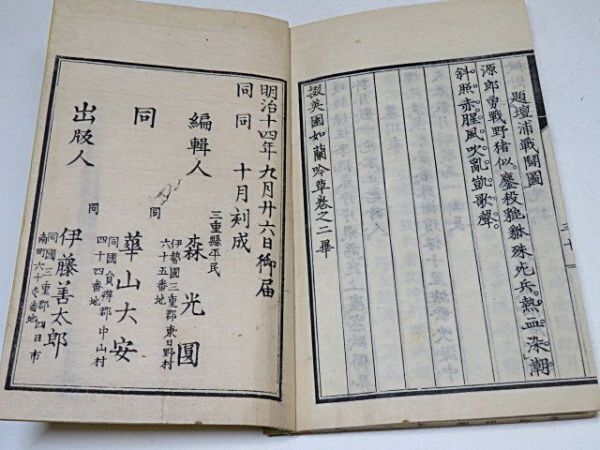 題壇浦戰鬪圖
源郎勇戰野猪似。鏖殺貔貅殊死兵。熱血染潮
斜照赤。腥風吹亂凱歌聲。
掇英園如蘭吟草卷之二畢
明治十四年九月廿六日御届
同同十月刻成
三重縣平民
編輯人 森光圓
伊勢國三重郡東日野村
六十五番地
同
同 華山大安
同國員辨郡中山村
四十四番地
同
出版人 伊藤善太郎
同國三重郡四日市
南町六十壱番地